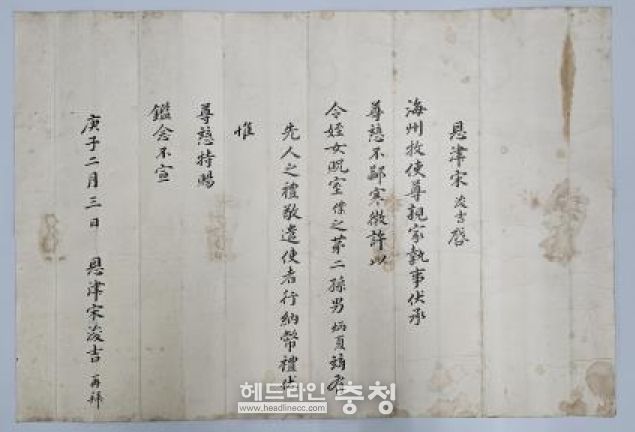 恩津宋浚吉啓
海州牧使尊親家執事伏承
尊慈不鄙寒微許以
令姪女貺室僕之第二孫男炳夏玆有
先人之禮敬遣使者行納幣禮伏
惟
尊慈特賜
鑑念不宣
庚子二月三日 恩津宋浚吉 再拜
헤드라인충청
www.headlinecc.com